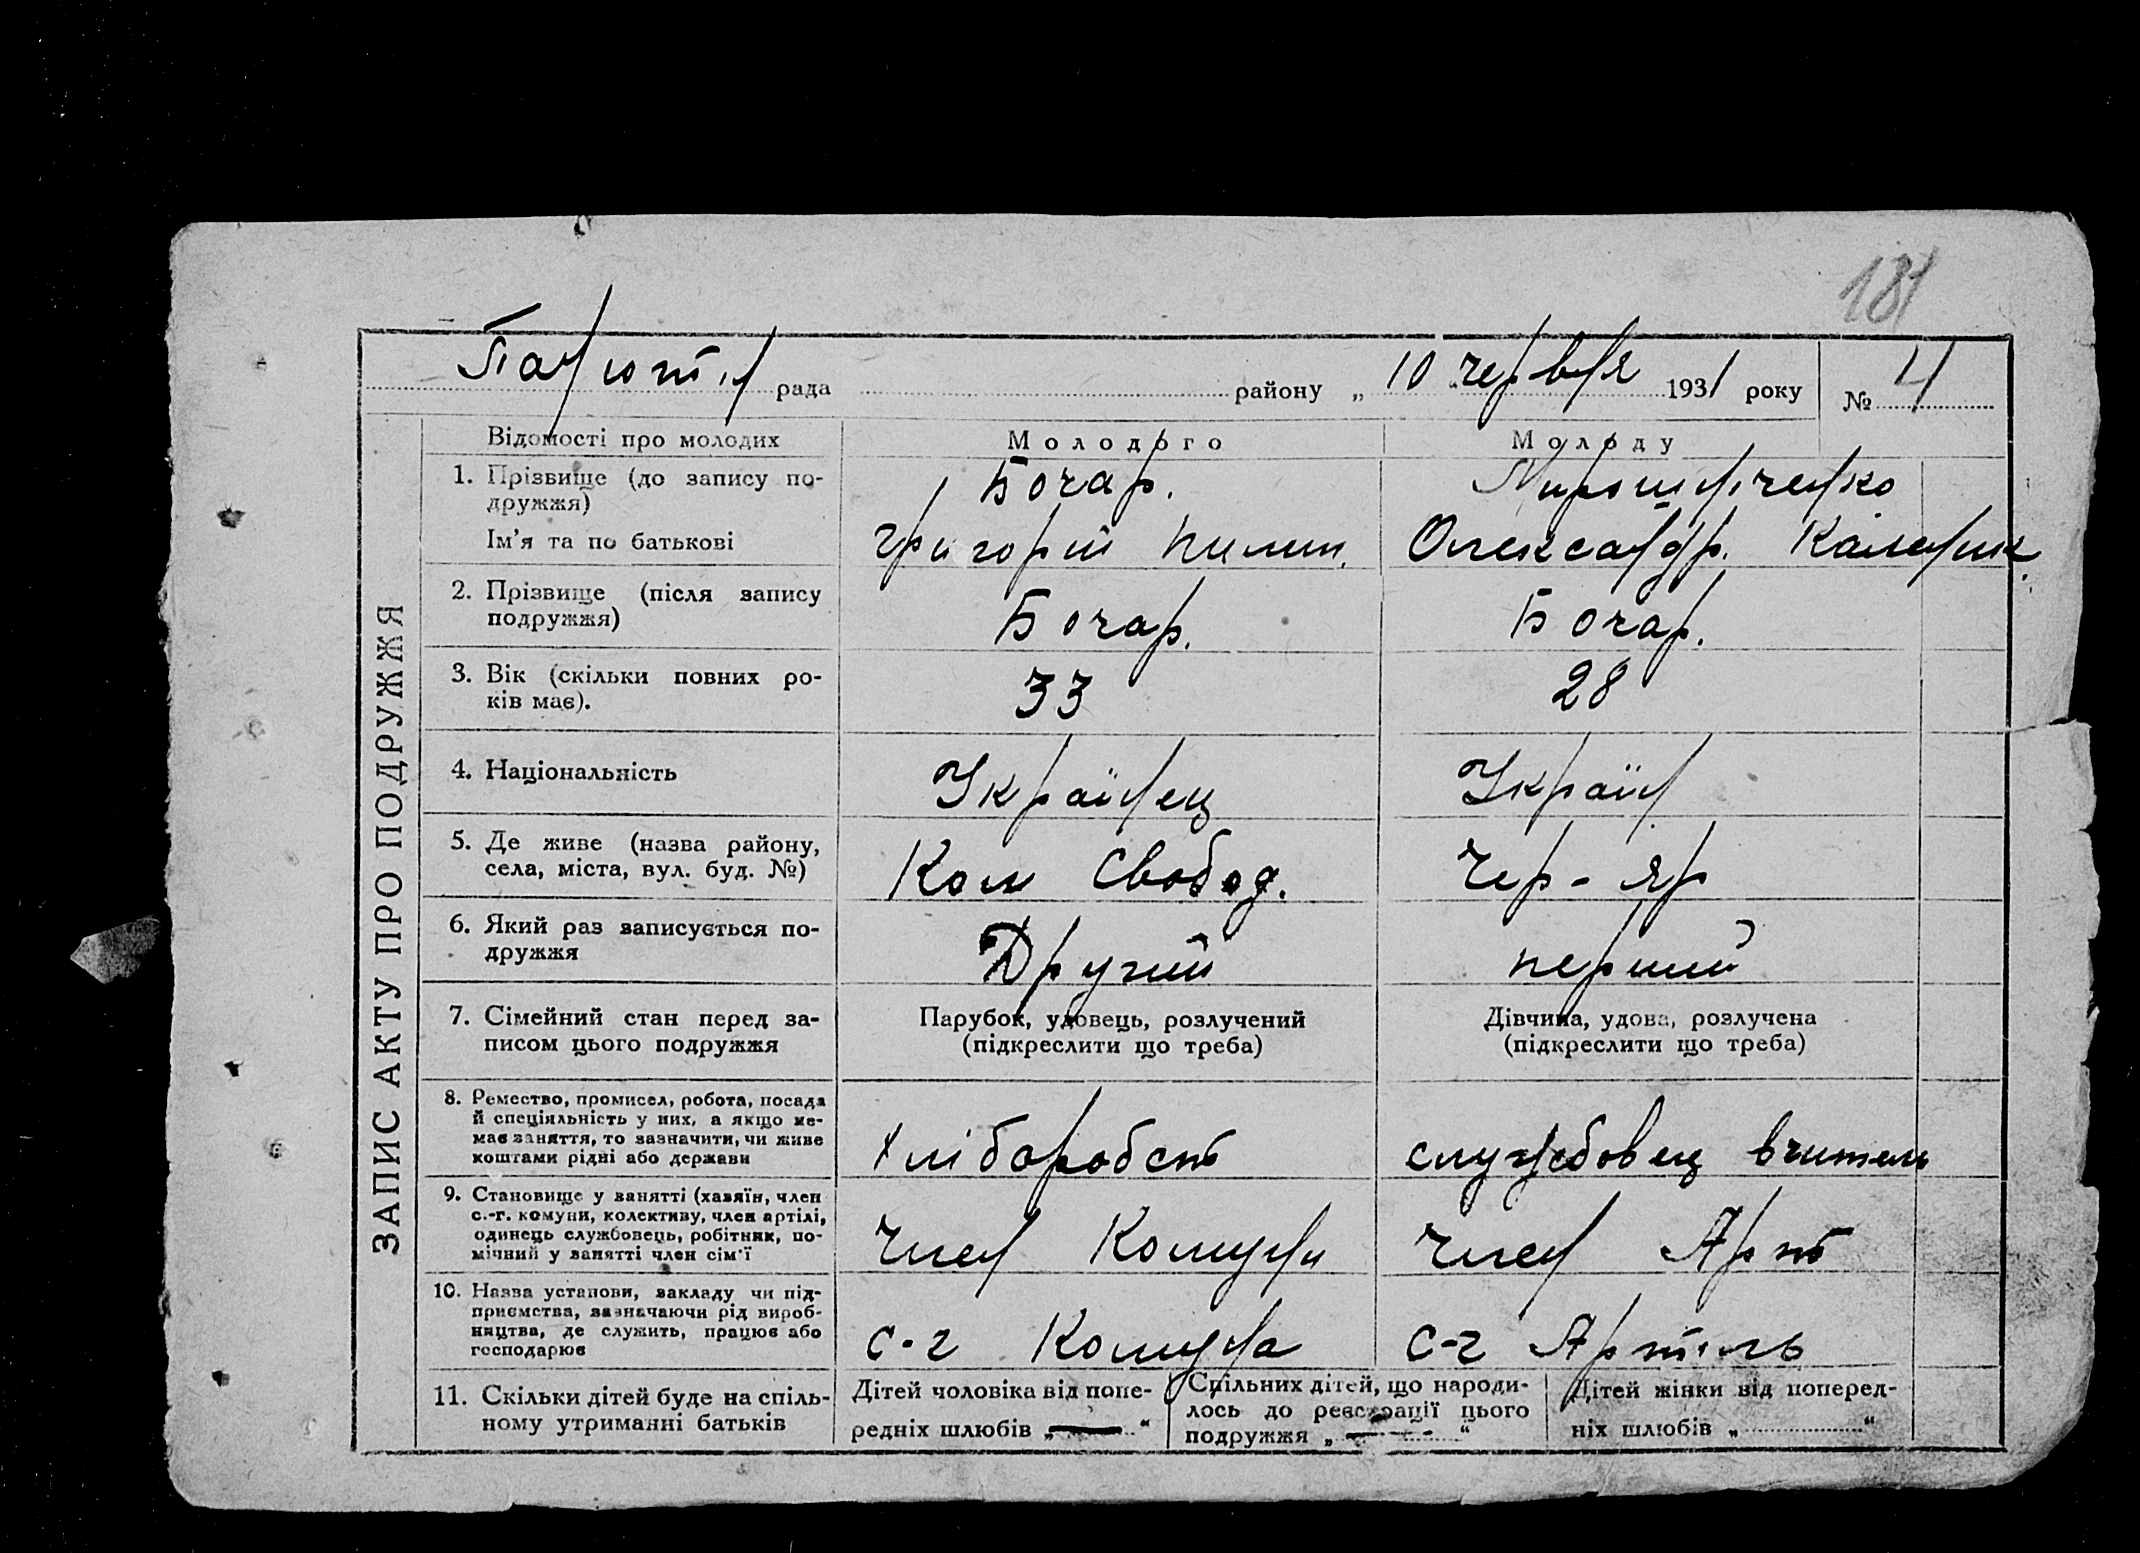 181
Панютин рада району „ 10 червня 1931 року № 4
ЗАПИС АКТУ ПРО ПОДРУЖЖЯ
Відомості про молодих Молодого Молоду
1. Прізвище (до запису по-
дружжя)
Бочар. Мирошниченко
Ім'я та по батькові
Григорій Пилип. Олександр. Каленик.
2. Прізвище (після запису
подружжя)
Бочар. Бочар.
3. Вік (скільки повних ро-
ків має).
33 28
4. Національність
Українец Україн
5. Де живе (назва району,
села, міста, вул. буд. №)
Ком Свобод. Чер-яр
6. Який раз записується по-
дружжя
Другий перший
7. Сімейний стан перед за-
писом цього подружжя
Парубок, удовець, розлучений
(підкреслити що треба)
Дівчина, удова, розлучена
(підкреслити що треба)
8. Ремество, промисел, робота, посада
й спеціяльність у них, а якщо не-
має заняття, то зазначити, чи живе
коштами рідні або держави
хліборобств службовец вчитель
9. Становище у занятті (хазяїн, член
с.-г. комуни, колективу, член артілі,
одинець службовець, робітник, по-
мічний у занятті член сім'ї
член Комуни член Арт
10. Назва установи, закладу чи під-
приємства, зазначаючи рід вироб-
ництва, де служить, працює або
господарює
с-г Комуна с-г Артіль
11. Скільки дітей буде на спіль-
ному утриманні батьків
Дітей чоловіка від попе-
редніх шлюбів „ — “
Спільних дітей, що народи-
лось до реєстрації цього
подружжя „ — “
Дітей жінки від поперед-
ніх шлюбів „ “